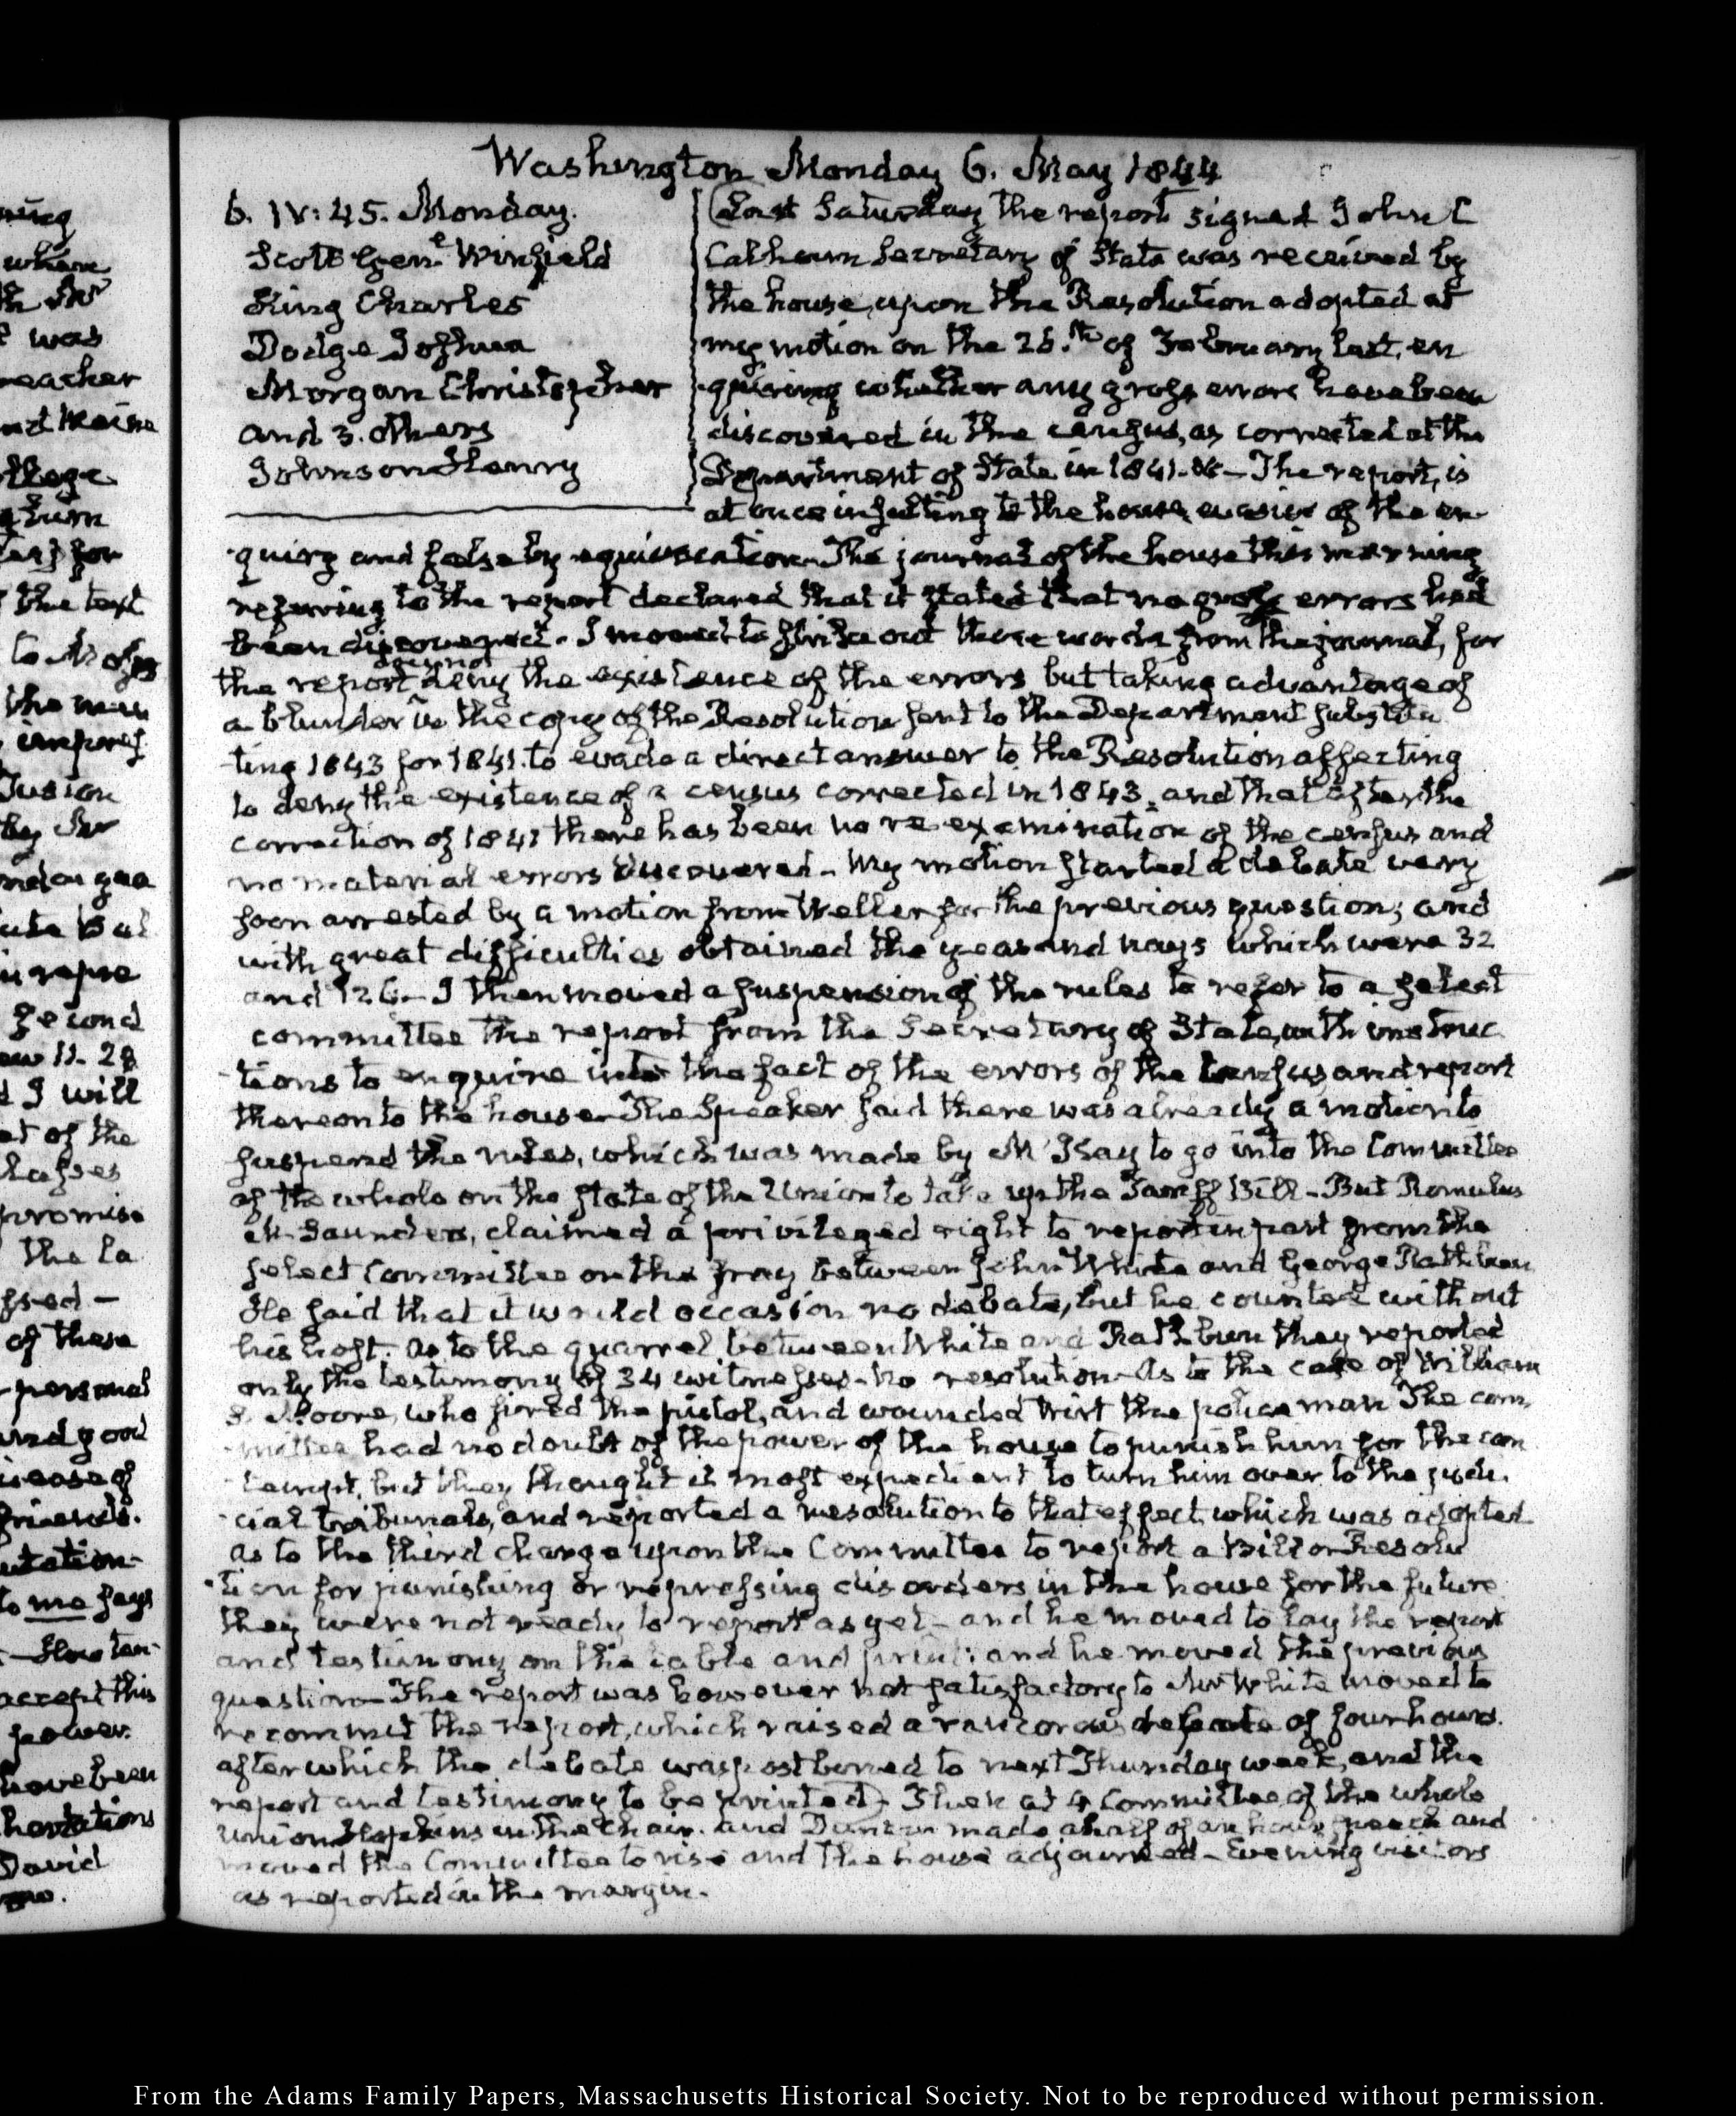 Washington Monday 6. May 1844
6. IV: 45. Monday.
Scott Gen.l Winfield
King Charles
Dodge Joshua
Morgan Christopher
and 3. others
Johnson Henry
(Last Saturday the report signed John C
Calhoun Secretary of State was received by
the house, upon the Resolution adopted at
my motion on the 26.th of February last, en
quiring whether any gross errors have been
discovered in the census, as corrected at the
Department of State in 1841. The report, is
at once insulting to the house, evasive of the en-
quiry and false by equivocation. The journal of the house this morning
referring to the report declared that it stated that no gross errors had
been discovered. I moved to strike out these words from the journal, for
the report does not deny the existence of the errors but taking advantage of
a blunder in the copy of the Resolution sent to the Department substitu
ting 1843 for 1841. to evade a direct answer to the Resolution affecting
to deny the existence of a census corrected in 1843, and that after the
correction of 1841 there has been no re-examination of the census and
no material errors discovered. My motion started a debate very
soon arrested by a motion from Weller for the previous question; and
with great difficulties obtained the yeas and nays which were 32
and 126. I then moved a suspension of the rules to refer to a select
committee the report from the Secretary of State, with instruc
tions to enquire into the fact of the errors of the census and report
thereon to the house. The Speaker said there was already a motion to
suspend the rules, which was made by M'Kay to go into the Committee
of the whole on the state of the Union to take up the Tariff Bill - But Romulus
M. Saunders, claimed a privileged right to report in part from the
select Committee on the fray between John White and George Rathbun
He said that it would occasion no debate, but he counted without
his host. As to the quarrel between White and Rathbun they reported
only the testimony of 34 witnesses - no resolution - As to the case of William
S. Moore, who fired the pistol, and wounded Wirt the police man The com
mittee had no doubt of the power of the house to punish him for the con
tempt, but they thought it most expedient to turn him over to the judi
cial tribunals, and reported a resolution to that effect which was adopted
as to the third charge upon the Committee to report a Bill or Resolu
tion for punishing or repressing disorders in the house for the future
they were not ready to report as yet - and he moved to lay the report
and testimony on the table and print: and he moved the previous
question - The report was however not satisfactory to Mr White moved to
recommit the report, which raised a rancorous debate of four hours.
after which the debate was postponed to next Thursday week, and the
report and testimony to be printed) Then at 4 Committee of the whole
Union Hopkins in the chair. and Duncan made a half of an hour speech and
moved the Committee to rise and the house adjourned - Evening visitors
as reported in the margin.
From the Adams Family Papers, Massachusetts Historical Society. Not to be reproduced without permission.